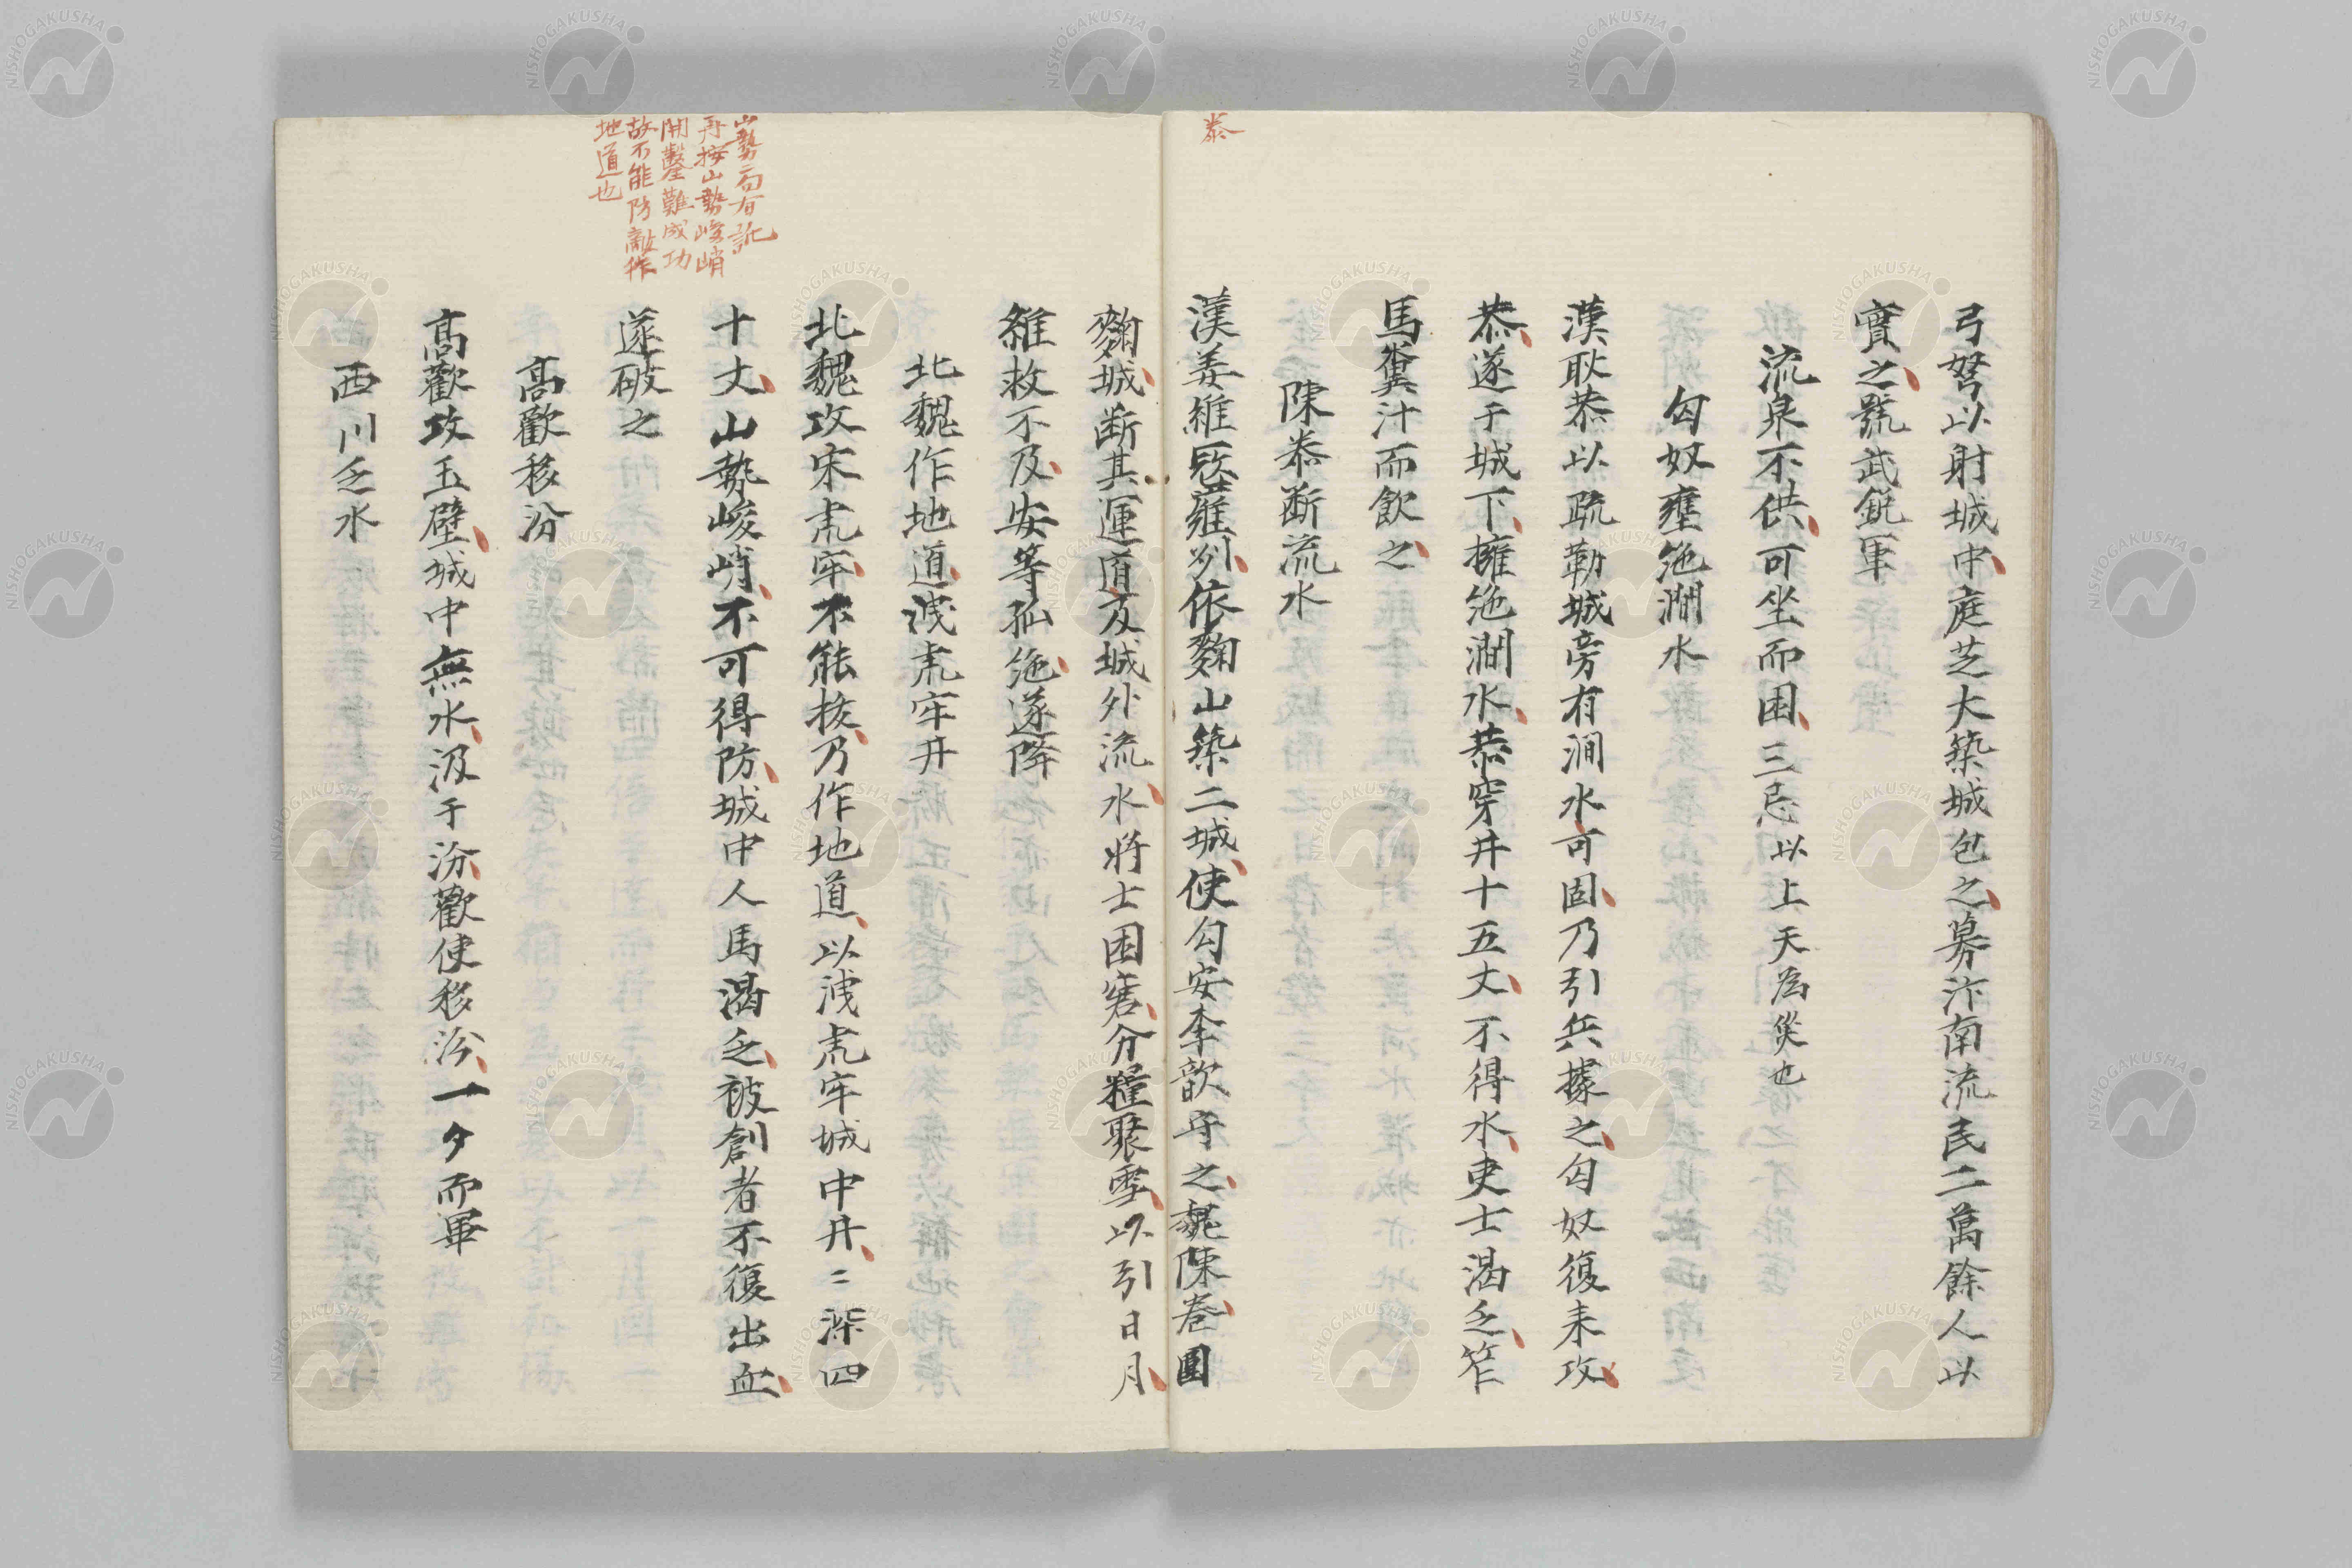 弓弩以射城中庭芝大築城包之募汴南流民二萬餘人以
實之號武鋭軍
流泉不供可坐而困三忌以上天為災也
匈奴壅絶澗水
漢耿恭以疏勒城旁有澗水可固乃引兵據之匈奴復来攻
恭遂于城下擁絶澗水恭穿井十五丈不得水吏士渴乏笮
馬糞汁而飲之
陳恭断流水
泰
漢姜維攺雍州依麴山築二城使勾安李歆守之魏陳泰圍
麴城断其運道及城外流水将士困窘分糧聚雪以引日月
維救不及安等孤絶遂降
北魏作地道洩虎牢井
北魏攻宋虎牢不能抜乃作地道以洩虎牢城中井〻深四
十丈山勢峻峭不可得防城中人馬渴乏被創者不復出血
遂破之
山勢二句有訛
再按山勢峻峭
開鑿難成功
故不能防敵作
地道也
高歡移汾
高歡攻玉壁城中無水汲于汾歡使移汾一夕而畢
西川乏水
NISHOGAKUSHA